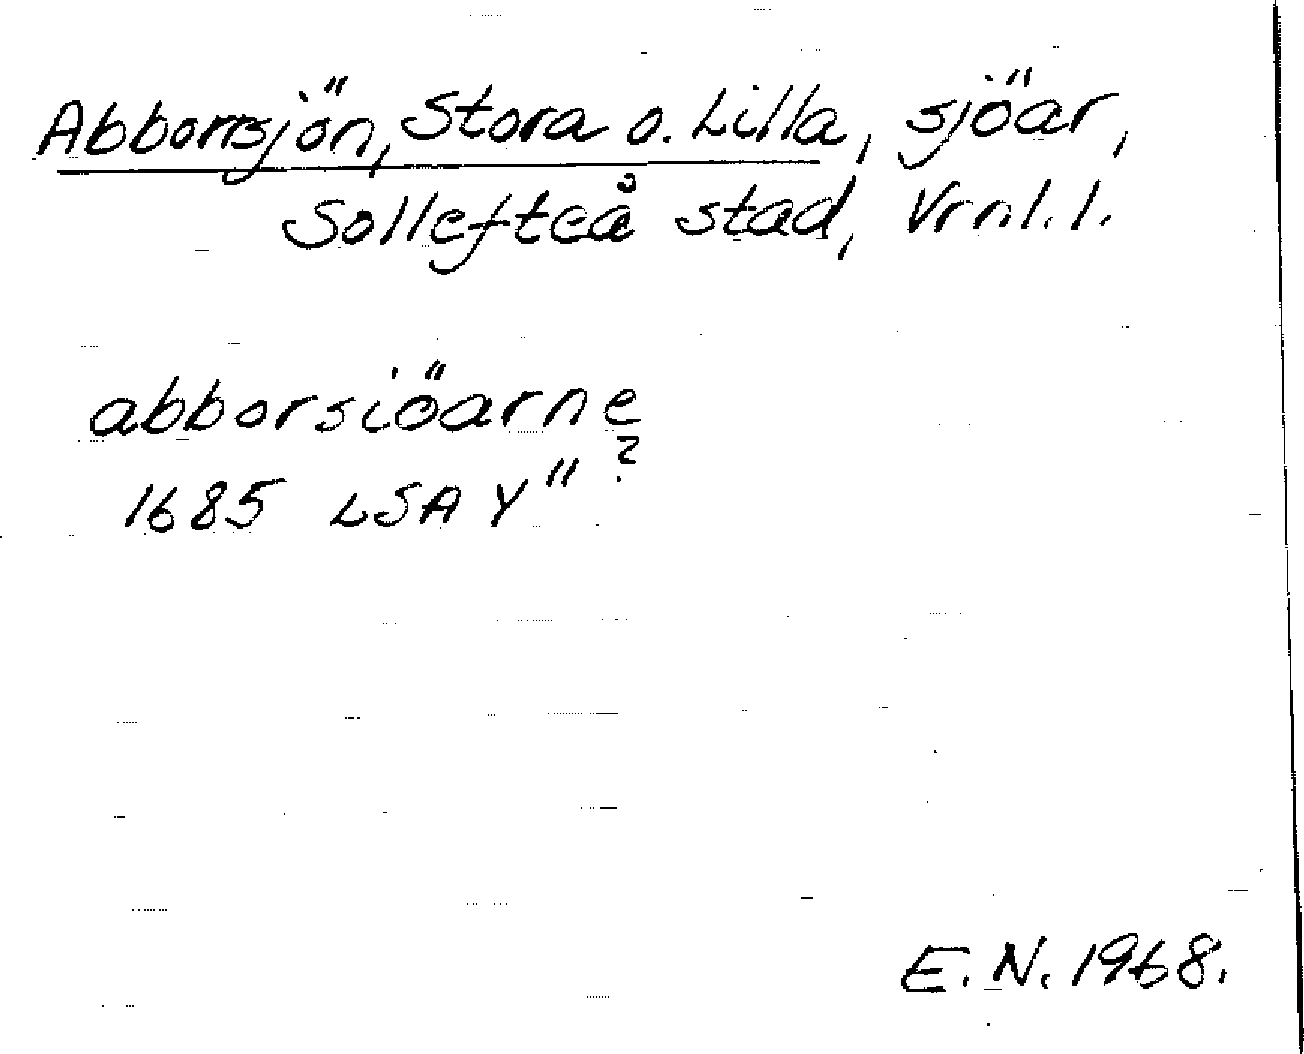 Abborrsjön, Stora o. Lilla, sjöar,
Sollefteå stad, Vrnl. l.
abborsiöarne
?
1685 LSA Y"
E. N. 1968.